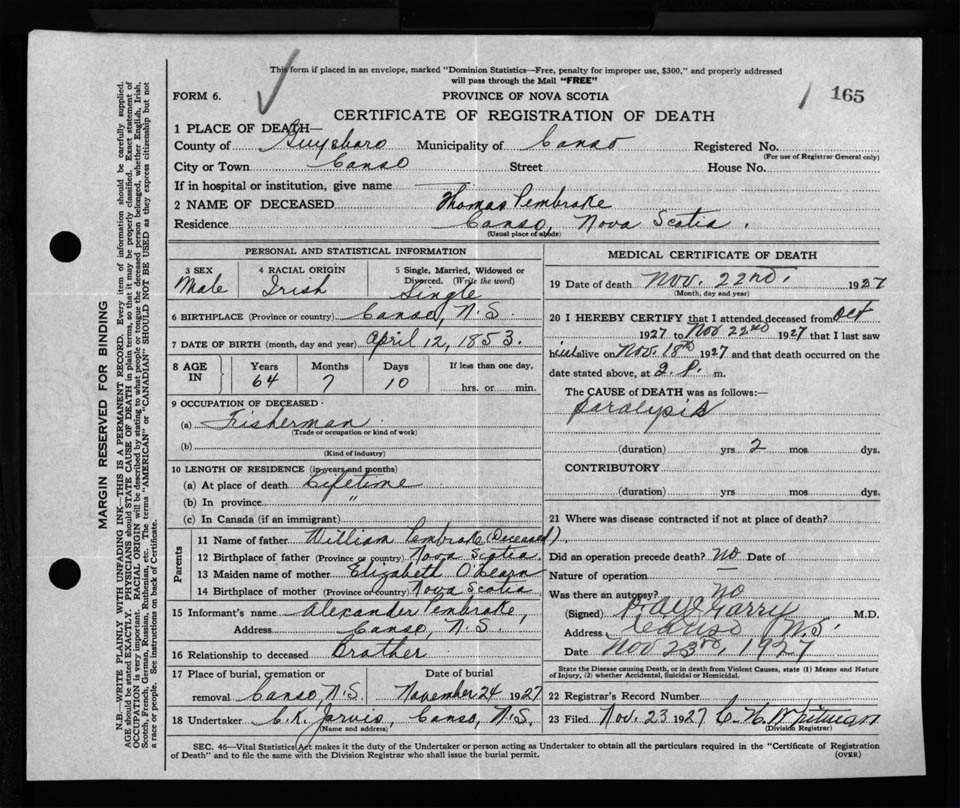 This form if placed in an envelope, marked "Dominion Statistics—Free, penalty for improper use, $300," and properly addressed
will pass through the Mail "FREE"
FORM 6.
PROVINCE OF NOVA SCOTIA
165
CERTIFICATE OF REGISTRATION OF DEATH
1 PLACE OF DEATH—
County of Guysboro Municipality of Canso Registered No.
(For use of Registrar General only)
City or Town Canso Street House No.
If in hospital or institution, give name —
2 NAME OF DECEASED Thomas Pembroke
Residence Canso, Nova Scotia.
(Usual place of abode)
PERSONAL AND STATISTICAL INFORMATION
3 SEX Male
4 RACIAL ORIGIN Irish
5 Single, Married, Widowed or
Divorced. (Write the word)
Single
6 BIRTHPLACE (Province or country) Canso, N.S.
7 DATE OF BIRTH (month, day and year) April 12, 1853.
8 AGE IN Years 64 Months 7 Days 10 If less than one day,
hrs. or min.
9 OCCUPATION OF DECEASED
(a) Fisherman
(Trade or occupation or kind of work)
(b)
(Kind of industry)
10 LENGTH OF RESIDENCE (in years and months)
(a) At place of death Lifetime
(b) In province "
(c) In Canada (if an immigrant)
Parents
11 Name of father William Pembroke (Deceased).
12 Birthplace of father (Province or country) Nova Scotia.
13 Maiden name of mother Elizabeth O'Hearn
14 Birthplace of mother (Province or country) Nova Scotia
15 Informant's name Alexander Pembroke,
Address Canso, N.S.
16 Relationship to deceased Brother
17 Place of burial, cremation or
removal Canso, N.S. November 24 1927
18 Undertaker C.K. Jarvis, Canso, N.S.
(Name and address)
MEDICAL CERTIFICATE OF DEATH
19 Date of death Nov. 22nd. 1927
(Month, day and year)
20 I HEREBY CERTIFY that I attended deceased from Oct
1927 to Nov 22nd 1927 that I last saw
h alive on Nov. 18th 1927 and that death occurred on the
date stated above, at 2. P. m.
The CAUSE OF DEATH was as follows:—
Paralysis
(duration) yrs 2 mos dys.
CONTRIBUTORY
(duration) yrs. mos. dys.
21 Where was disease contracted if not at place of death?
Did an operation precede death? no Date of
Nature of operation —
Was there an autopsy? no
(Signed) M.D.
Address Canso N.S.
Date Nov 23rd, 1927
State the Disease causing Death, or in death from Violent Causes, state (1) Means and Nature
of Injury, (2) whether Accidental, Suicidal or Homicidal.
22 Registrar's Record Number
23 Filed Nov. 23 1927 C. H. Whitman
(Division Registrar)
SEC. 46—Vital Statistics Act makes it the duty of the Undertaker or person acting as Undertaker to obtain all the particulars required in the "Certificate of Registration
of Death" and to file the same with the Division Registrar who shall issue the burial permit.
(OVER)
MARGIN RESERVED FOR BINDING
N.B.—WRITE PLAINLY WITH UNFADING INK—THIS IS A PERMANENT RECORD. Every item of information should be carefully supplied.
AGE should be stated EXACTLY. PHYSICIANS should STATE CAUSE OF DEATH in plain terms, so that it may be properly classified. Exact statement of
OCCUPATION is very important. RACIAL ORIGIN will be described by stating to what people or tongue the deceased person belonged, whether English, Irish,
Scotch, French, German, Russian, Ruthenian, etc. The terms "AMERICAN" or "CANADIAN" SHOULD NOT BE USED as they express citizenship but not
a race or people. See instructions on back of Certificate.